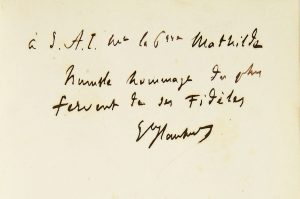 à S. A. I. Mme la Psse Mathilde
humble hommage du plus
fervent de ses Fidèles
Gve Flaubert